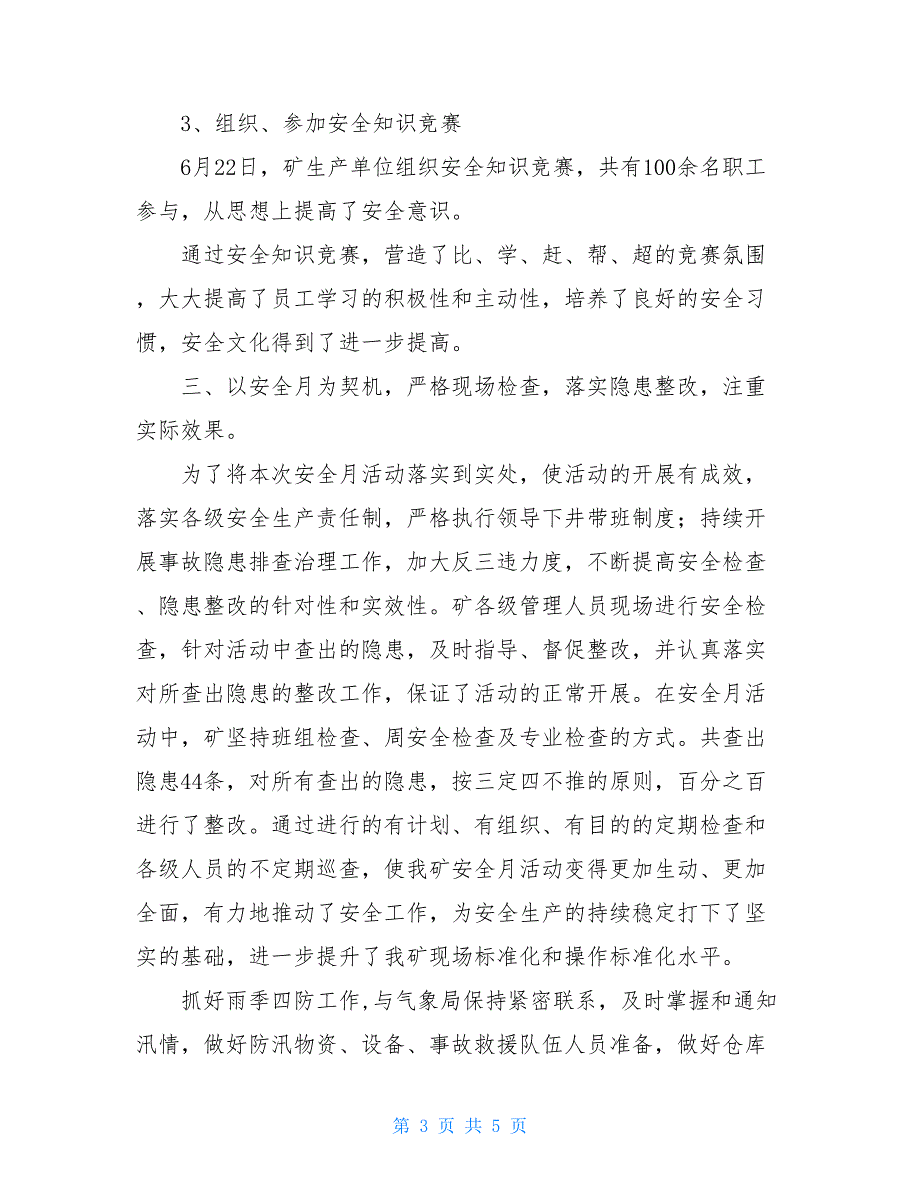 3、组织、参加安全知识竞赛
6月22日，矿生产单位组织安全知识竞赛，共有100余名职工
参与，从思想上提高了安全意识。
通过安全知识竞赛，营造了比、学、赶、帮、超的竞赛氛围
，大大提高了员工学习的积极性和主动性，培养了良好的安全习
惯，安全文化得到了进一步提高。
三、以安全月为契机，严格现场检查，落实隐患整改，注重
实际效果。
为了将本次安全月活动落实到实处，使活动的开展有成效，
落实各级安全生产责任制，严格执行领导下井带班制度；持续开
展事故隐患排查治理工作，加大反三违力度，不断提高安全检查
、隐患整改的针对性和实效性。矿各级管理人员现场进行安全检
查，针对活动中查出的隐患，及时指导、督促整改，并认真落实
对所查出隐患的整改工作，保证了活动的正常开展。在安全月活
动中，矿坚持班组检查、周安全检查及专业检查的方式。共查出
隐患44条，对所有查出的隐患，按三定四不推的原则，百分之百
进行了整改。通过进行的有计划、有组织、有目的的定期检查和
各级人员的不定期巡查，使我矿安全月活动变得更加生动、更加
全面，有力地推动了安全工作，为安全生产的持续稳定打下了坚
实的基础，进一步提升了我矿现场标准化和操作标准化水平。
抓好雨季四防工作,与气象局保持紧密联系，及时掌握和通知
汛情，做好防汛物资、设备、事故救援队伍人员准备，做好仓库
第 3 页 共 5 页